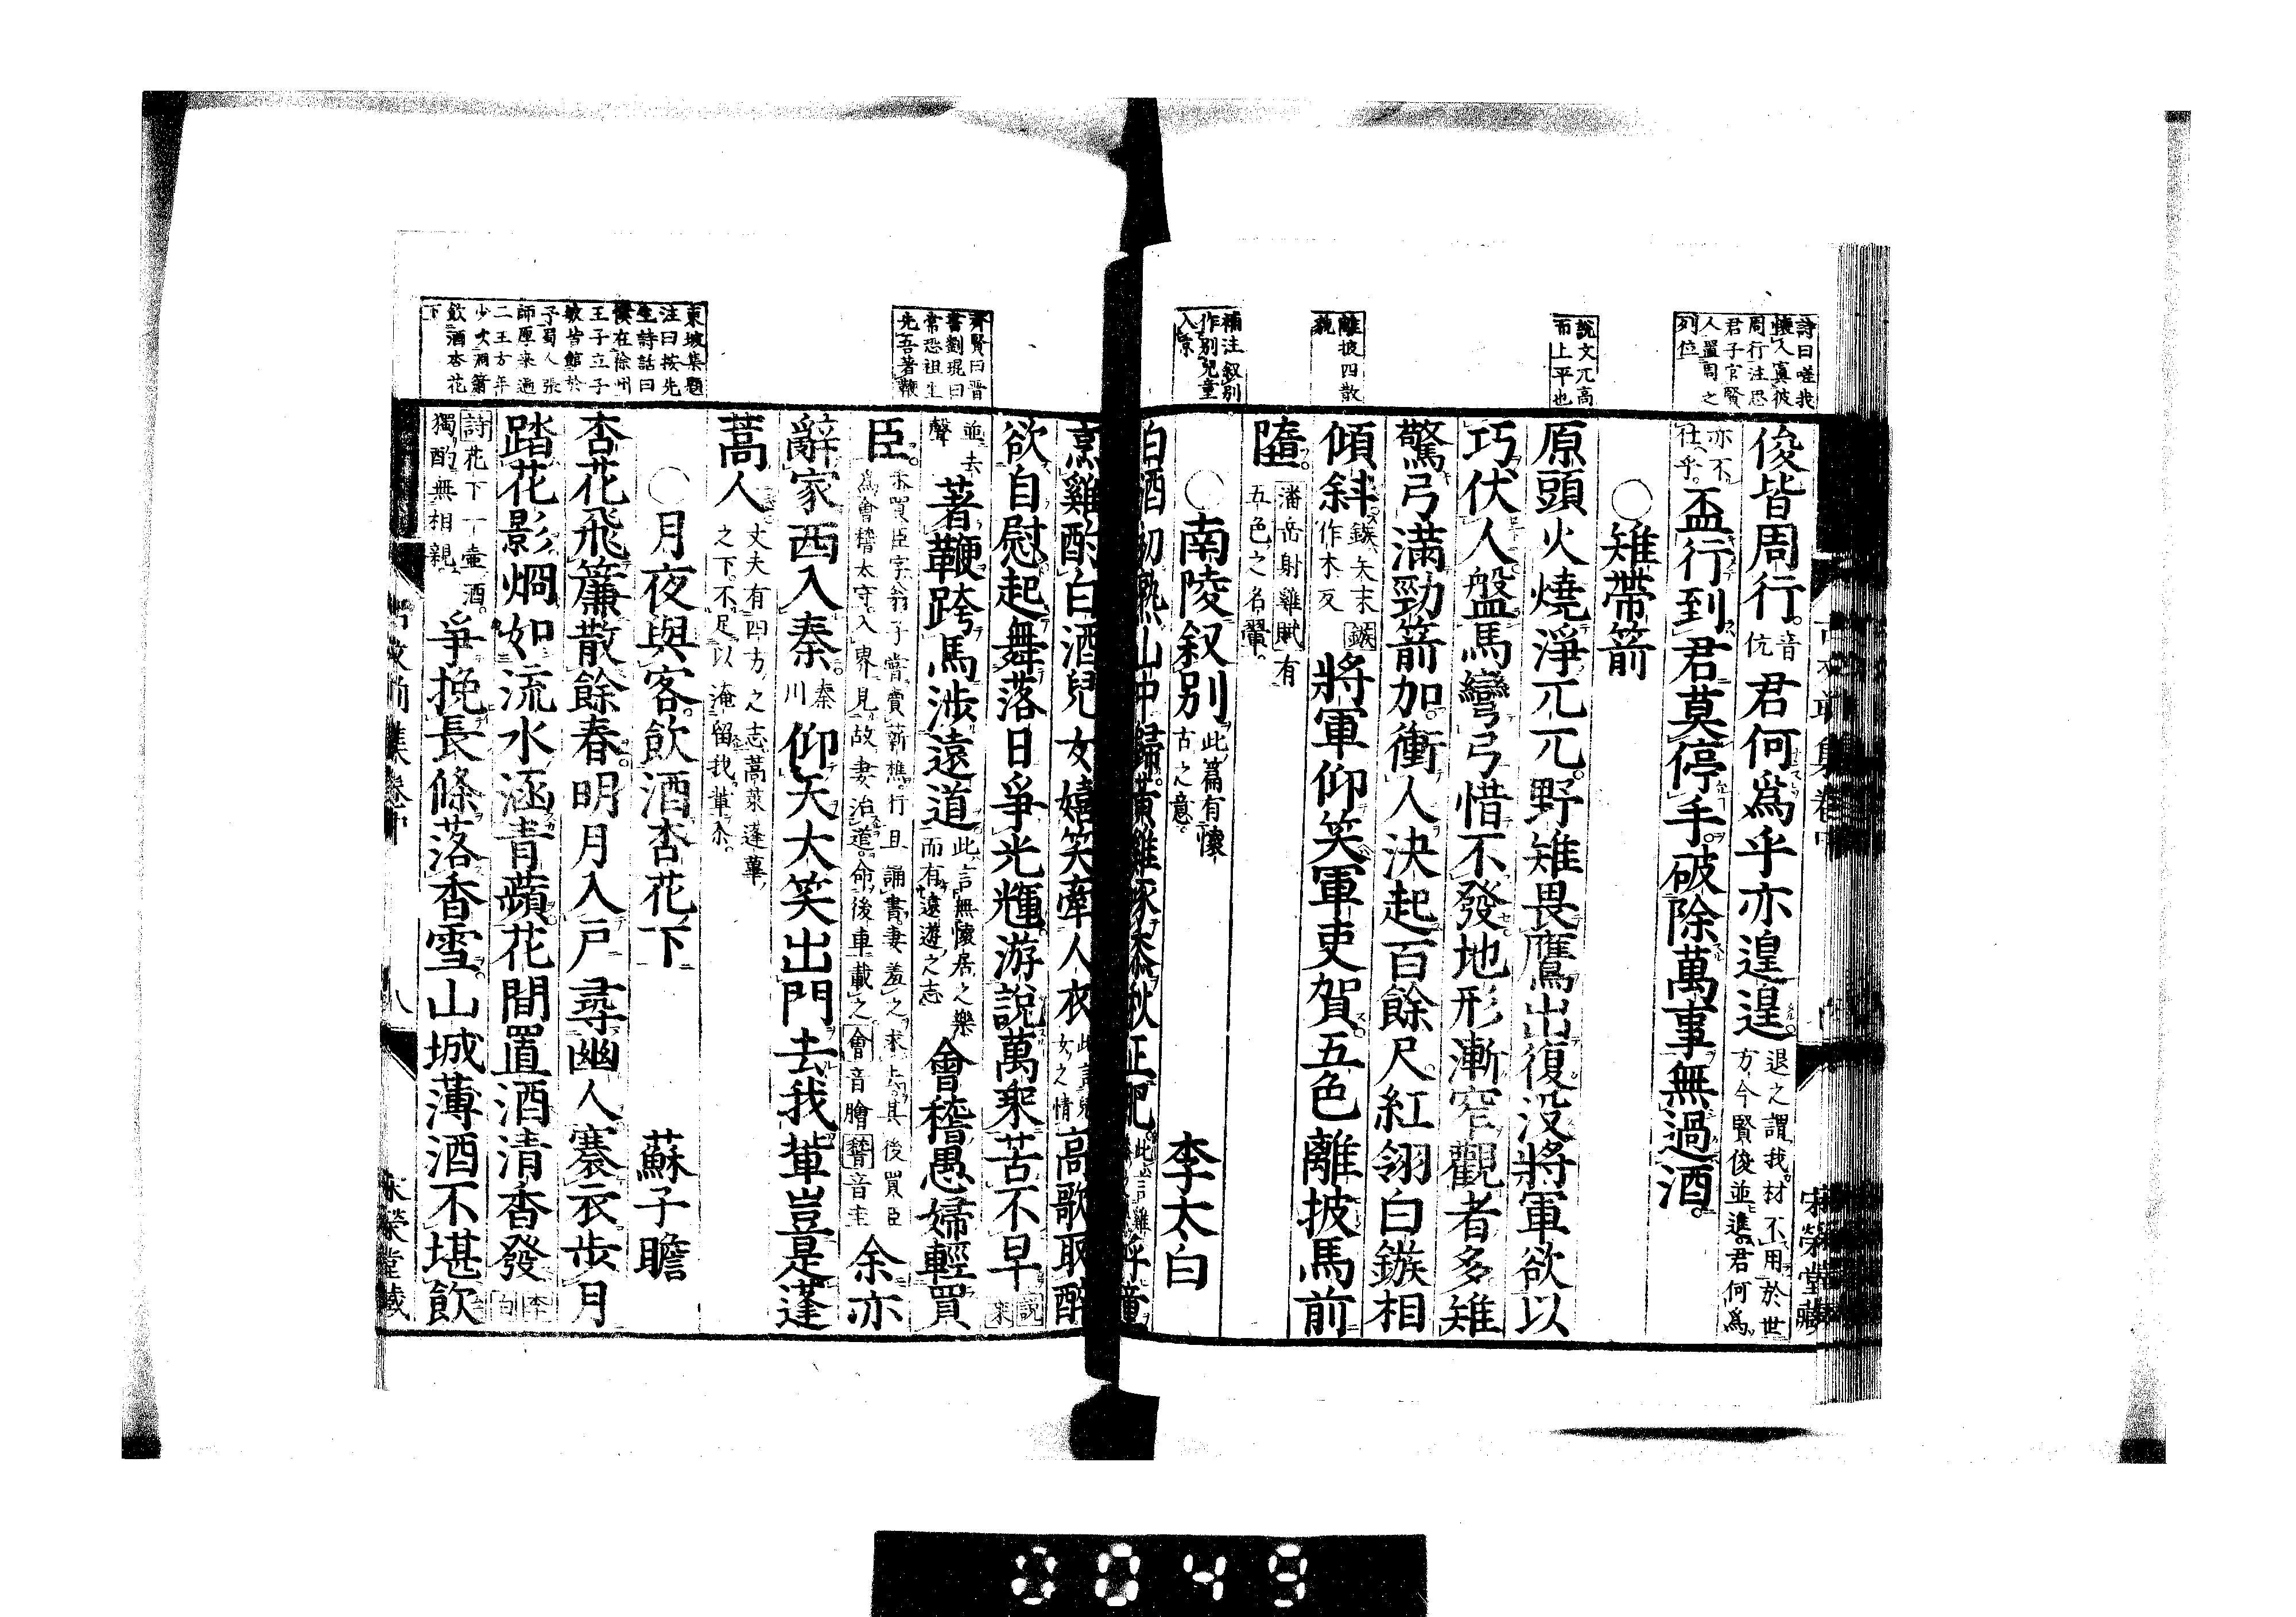 詩曰嗟我
懷人寘彼
周行注思
君子官賢
人置周之
列位
說文兀高
而上平也
離披四散
貌
補注叙別
作別兒童
入京
俊皆周行音伉君何爲乎亦遑遑退之謂我材不用於世方今賢俊並進君何爲
亦不仕乎盃行到君莫停手破除萬事無過酒
○雉帶箭
原頭火燒淨兀兀野雉畏鷹出復没將軍欲以
巧伏人盤馬彎弓惜不發地形漸窄觀者多雉
驚弓滿勁箭加衝人決起百餘尺紅翎白鏃相
傾斜鏃矢末作木反鏃將軍仰笑軍吏賀五色離披馬前
墮潘岳射雞賦有五色之名翬
○南陵叙別此篇有懷古之意李太白
白酒初熟山中歸黃雞啄黍秋正肥
宋榮堂藏
齊賢曰晋
書劉琨曰
常恐祖生
先吾著鞭
東坡集題
注曰按先
生詩話曰
僕在徐州
王子立子
敏皆館於
子蜀人張
師厚来過
二王方年
少吹洞簫
飲酒杏花
下
烹雞酌白酒兒女嬉笑牽人衣此言兒女之情高歌取醉
欲自慰起舞落日爭光輝游說萬乘苦不早說
並去聲著鞭跨馬涉遠道此言無懷居之樂而有遠遊之志會稽愚婦輕買
臣朱買臣字翁子嘗賣薪樵行且誦書妻羞之求去其後買臣爲會稽太守入界見故妻治道命後車載之會音膾稽音圭余亦
辭家西入秦秦川仰天大笑出門去我輩豈是蓬
蒿人丈夫有四方之志蒿萊蓬蓽之下不足以淹留我輩尒
○月夜與客飲酒杏花下蘇子瞻
杏花飛簾散餘春明月入戸尋幽人褰衣步月
踏花影烱如流水涵青蘋花間置酒清香發李白
詩花下一壷酒獨酌無相親爭挽長條落香雪山城薄酒不堪飲
八